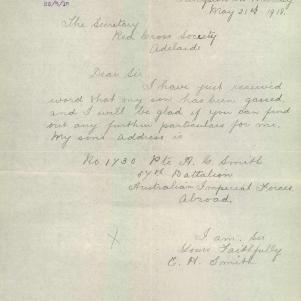 May 21st 1918.
The Secretary
Red Cross Society
Adelaide
Dear Sir
I have just received
word that my son has been gassed
and I will be glad if you can find
out any further particulars for me.
My sons address is
No 1730 Pte A. C. Smith
Battalion
Australian Imperial Forces
Abroad.
X
I am Sir
Yours Faithfully
C. H. Smith